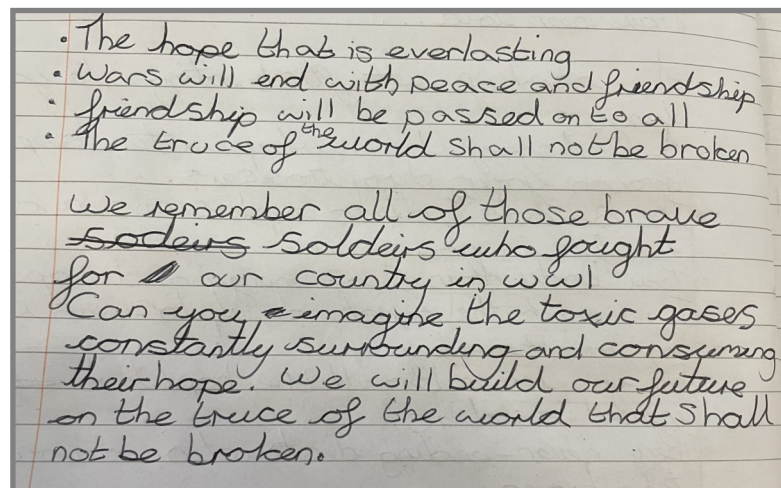 · The hope that is everlasting
· Wars will end with peace and friendship
· friendship will be passed on to all
· The truce of the world shall not be broken
We remember all of those brave
sodeirs soldeirs who fought
for our country in WW1
Can you imagine the toxic gases
constantly surrounding and consuming
their hope. We will build our future
on the truce of the world that shall
not be broken.